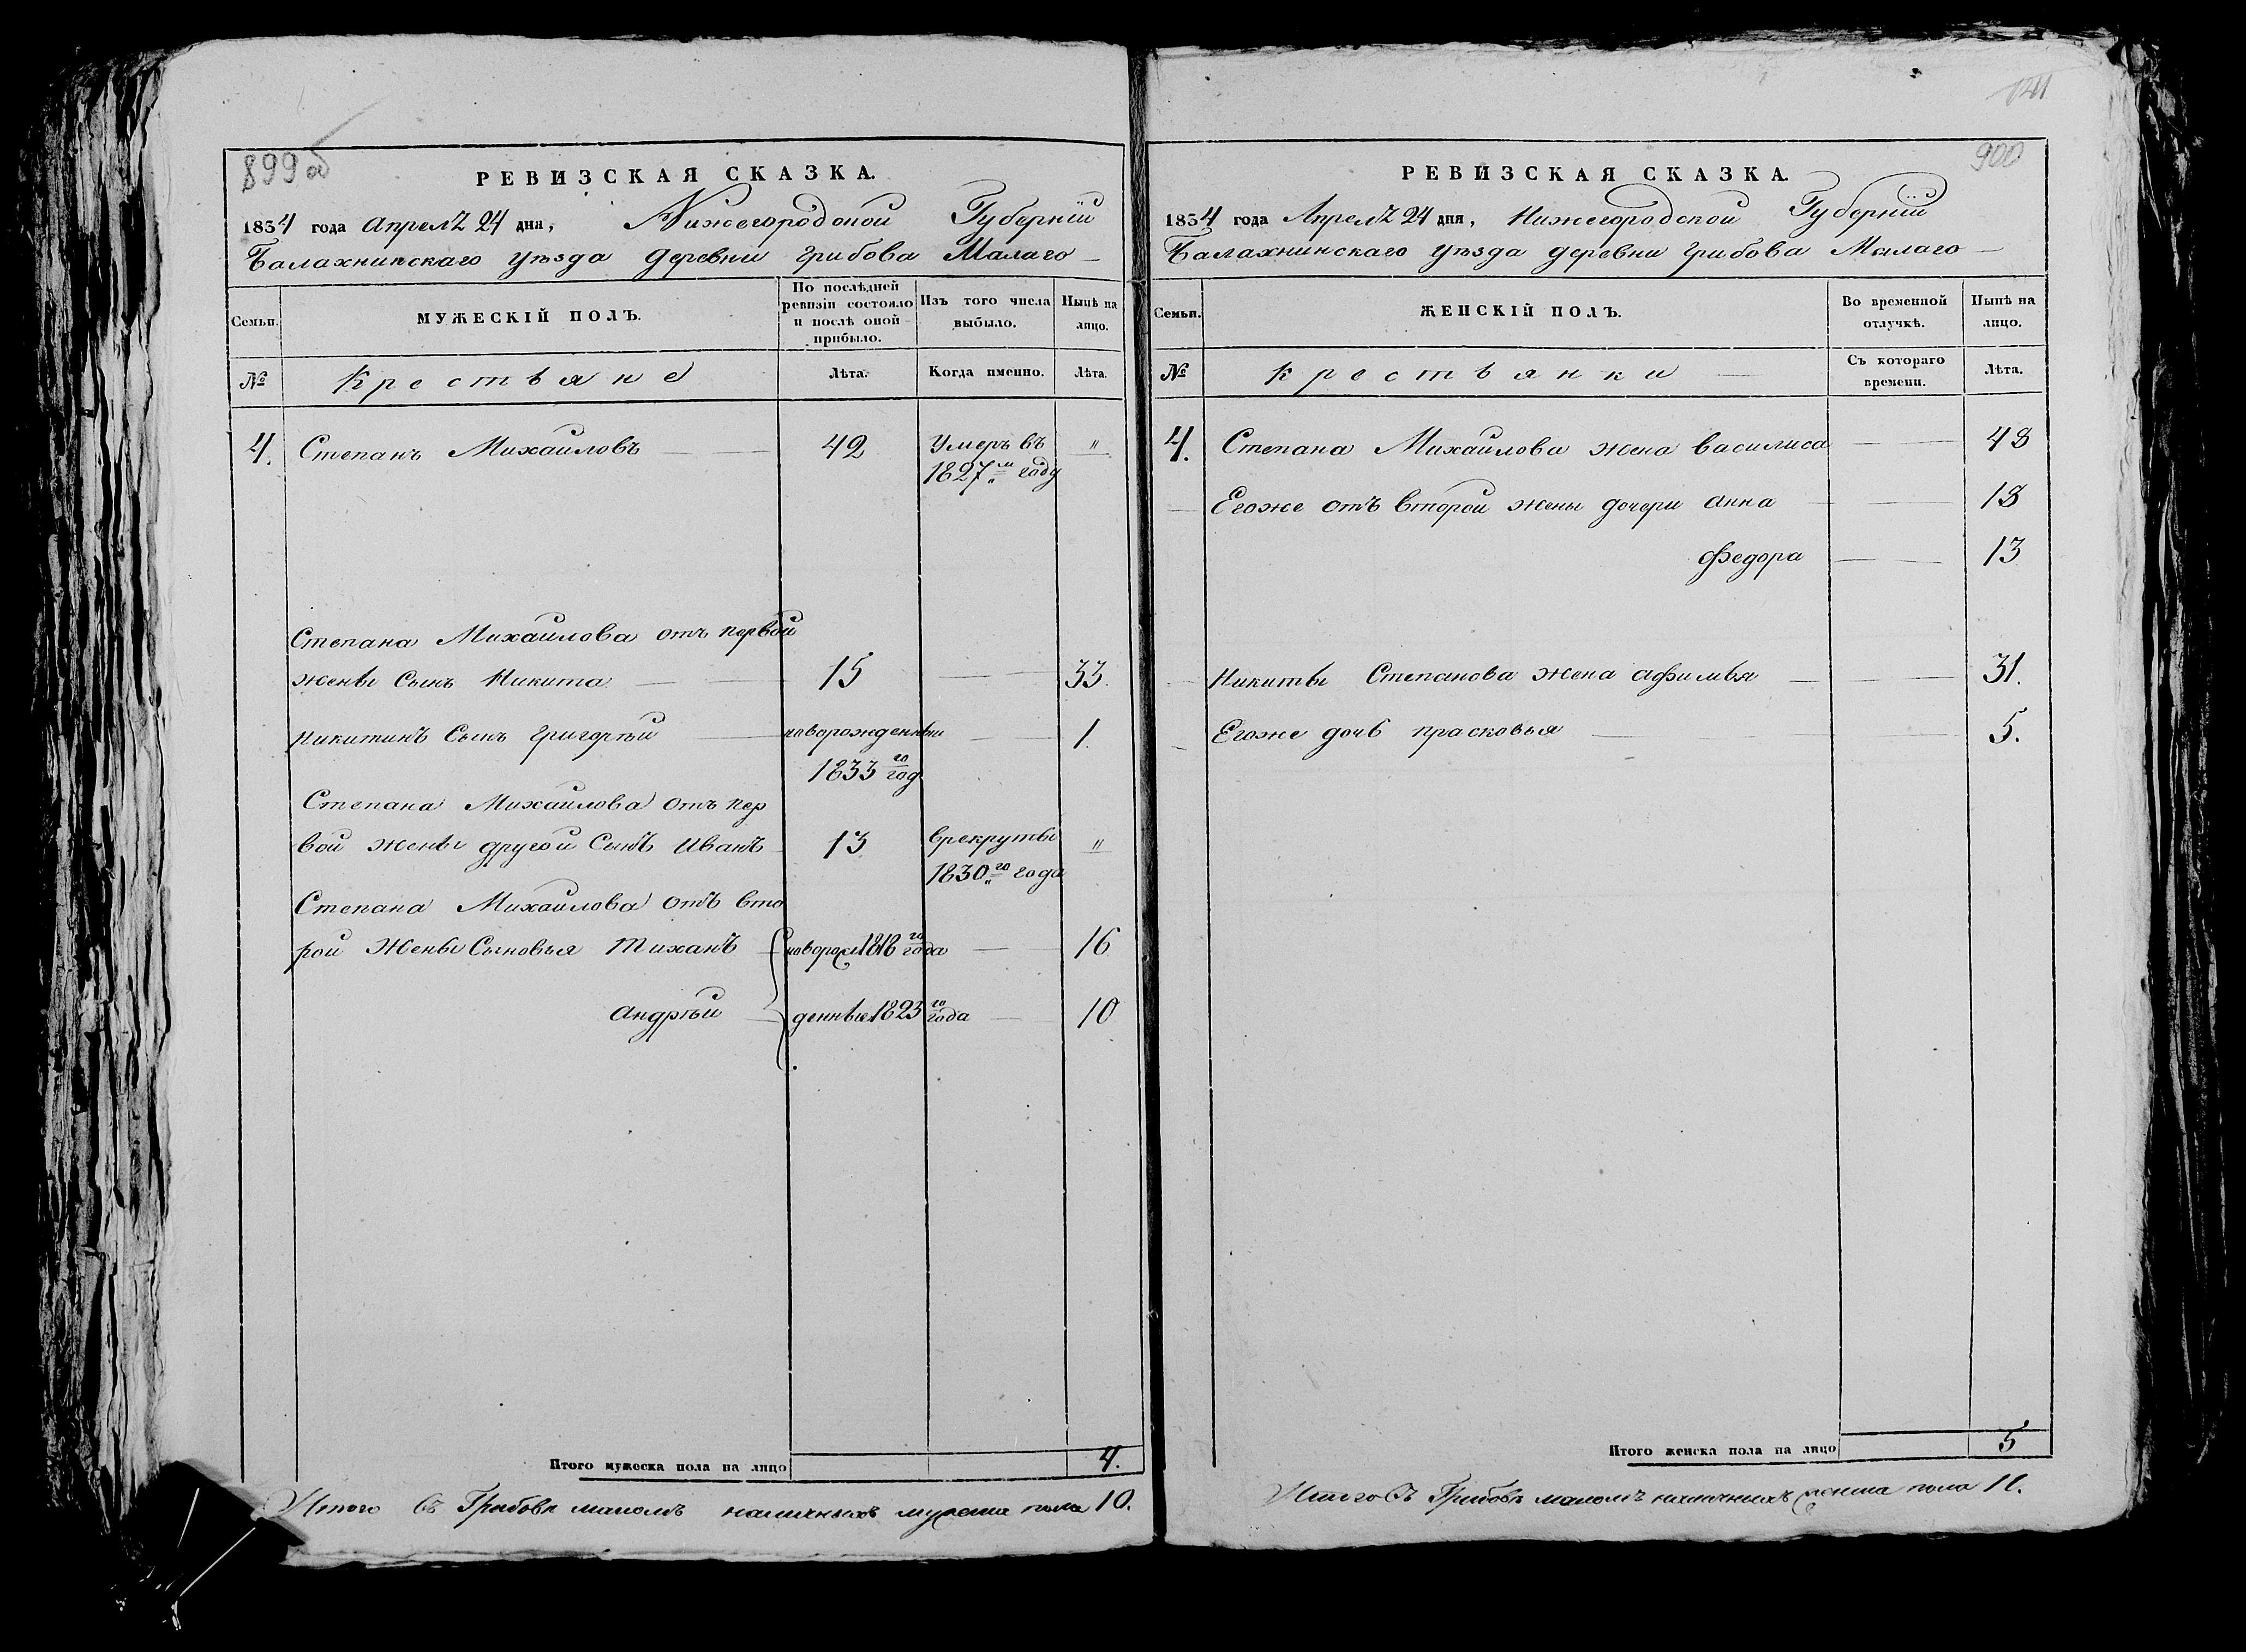 899об
РЕВИЗСКАЯ СКАЗКА.
1834 года Апреля 24 дня, Нижегородской Губернїи
Балахнинскаго уѣзда деревни Грибова Малаго
Семьи.
МУЖЕСКІЙ ПОЛЪ.
По послѣдней ревизіи состояло и послѣ оной прибыло.
Изъ того числа выбыло.
Нынѣ на лицо.
№
Крестьяне
Лѣта.
Когда именно.
Лѣта.
4. Степанъ Михайловъ 42 Умеръ въ "
1827м году
Степана Михайлова отъ первой
жены сынъ Никита 15 33.
Никитинъ Сынъ Григорѣй новорожденный 1.
1833го год
Степана Михайлова отъ пер
вой жены другой Сынъ Иванъ 13 врекруты "
1830го года
Степана Михайлова отъ вто
рой Жены Сыновья Тиханъ новорож 1818го года 16
Андрѣй денные 1823го года 10
Итого мужеска пола на лицо 4.
Итого въ Грибовѣ маломъ наличныхъ мужеска пола 10.
141
900
РЕВИЗСКАЯ СКАЗКА.
1834 года Апреля 24 дня, Нижегородской Губернїи
Балахнинскаго уѣзда деревни Грибова Малаго
Семьи.
ЖЕНСКІЙ ПОЛЪ.
Во временной отлучкѣ.
Нынѣ на лицо.
№
Крестьянки
Съ котораго времени.
Лѣта.
4. Степана Михайлова жена Василиса 48
Егоже отъ второй жены дочери Анна 18
Федора 13
Никиты Степанова жена Афимья 31.
Егоже дочь прасковья 5.
Итого женска пола на лицо 5
Итого въ Грибовѣ маломъ наличныхъ женска пола 11.